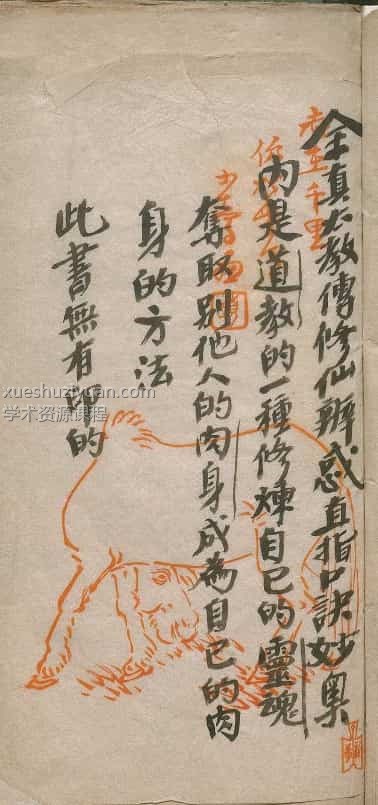 全真大教傳修仙辨惑直指口訣妙奥
内是道教的一種修煉自己的靈魂
奪取別他人的肉身成為自己的肉
身的方法
此書無有印的
xueshuziyuan.com
学术资源课程